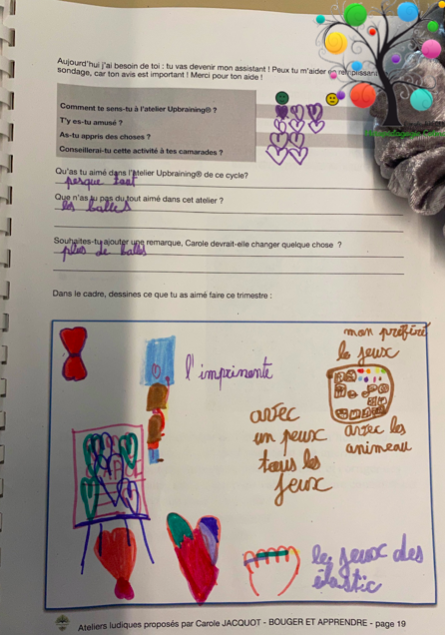 Aujourd'hui j'ai besoin de toi : tu vas devenir mon assistant ! Peux tu m'aider en remplissant
sondage, car ton avis est important ! Merci pour ton aide !
Comment te sens-tu à l'atelier Upbraining® ?
T'y es-tu amusé ?
As-tu appris des choses ?
Conseillerai-tu cette activité à tes camarades ?
Qu'as tu aimé dans l'atelier Upbraining® de ce cycle?
presque tout
Que n'as tu pas du tout aimé dans cet atelier ?
les balles
Souhaites-tu ajouter une remarque, Carole devrait-elle changer quelque chose ?
plus de balles
Dans le cadre, dessines ce que tu as aimé faire ce trimestre :
mon préfiré
le jeux
l'imprimente
avec
un peux
tous les
jeux
avec les
animeau
le jeux des
élastic
Ateliers ludiques proposés par Carole JACQUOT - BOUGER ET APPRENDRE - page 19